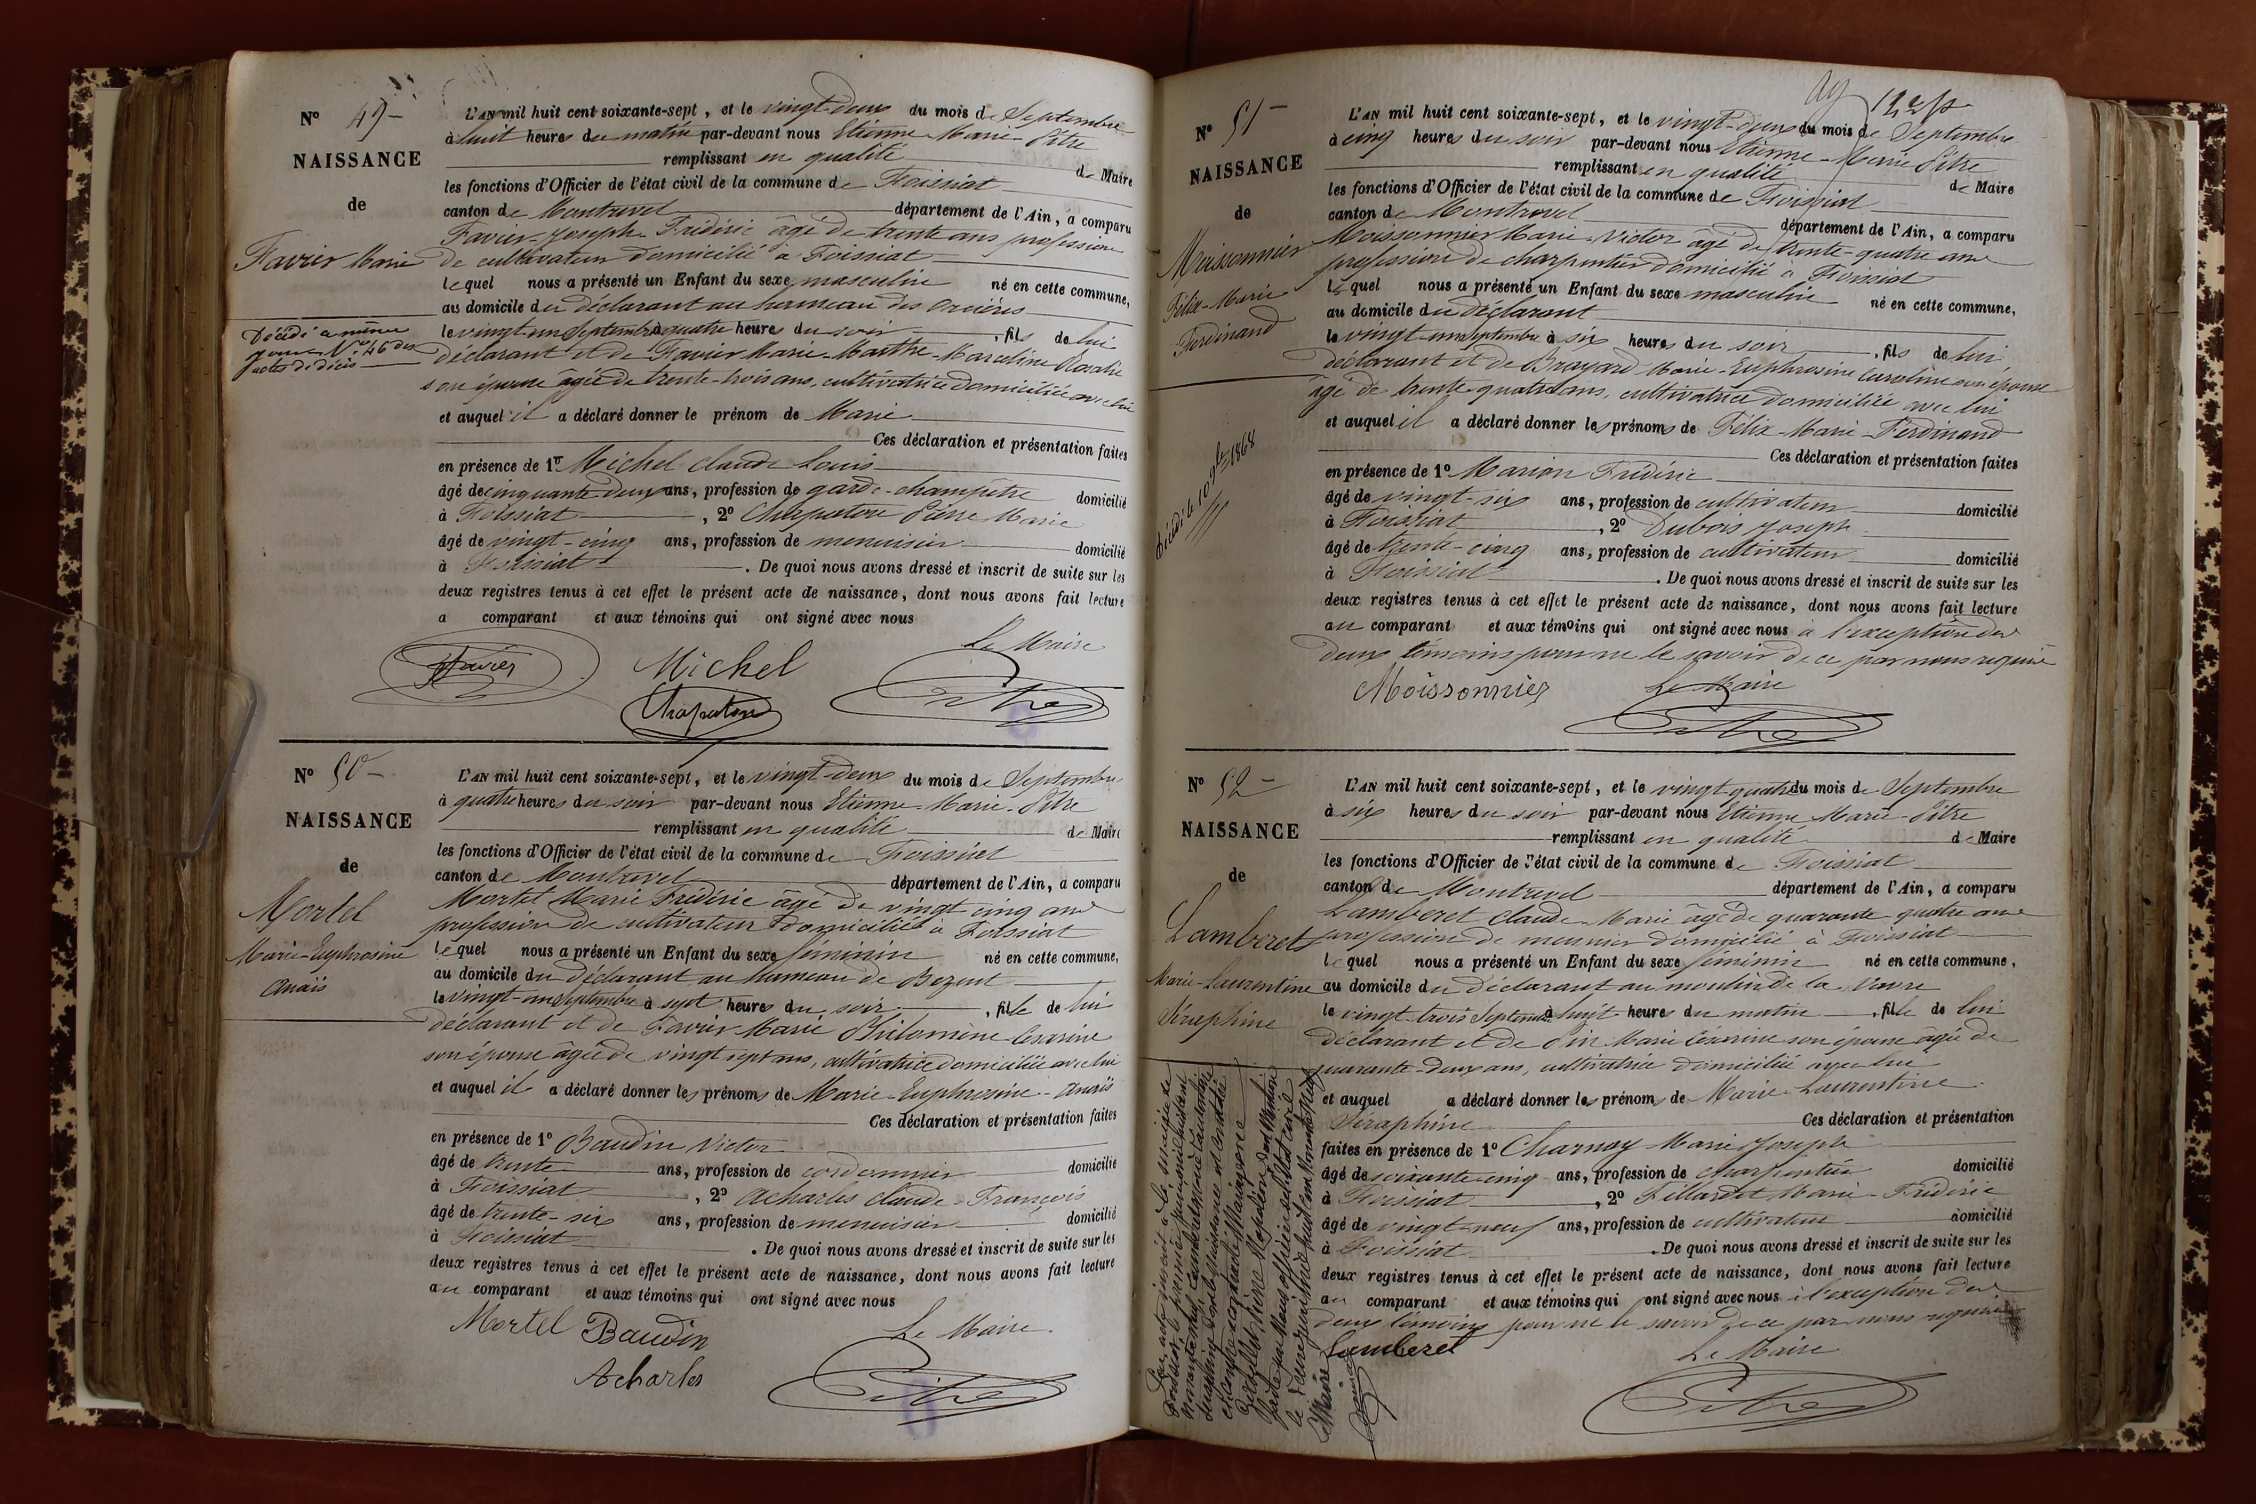 N° 49
NAISSANCE
de
Favier Marie
Décédé a même
jour N° 46 des
actes de décès
L'AN mil huit cent soixante-sept, et le vingt-deux du mois de Septembre
à huit heures du matin par-devant nous Etienne-Marie-Pitre
remplissant en qualité de Maire
les fonctions d'Officier de l'état civil de la commune de Foissiat
canton de Montrevel département de l'Ain, a comparu
Favier-Joseph-Frédéric âgé de trente ans profession
de cultivateur domicilié à Foissiat
lequel nous a présenté un Enfant du sexe masculin né en cette commune,
au domicile du déclarant au hameau des
le vingt-un Septembre à quatre heures du soir, fils de lui
déclarant et de Favier Marie-Marthe-Marceline Rosalie
son épouse âgée de trente-trois ans, cultivatrice domiciliée avec lui
et auquel il a déclaré donner le prénom de Marie
Ces déclaration et présentation faites
en présence de 1° Michel Claude Louis
âgé de cinquante-deux ans, profession de garde-champêtre domicilié
à Foissiat, 2° Chapaton Pierre Marie
âgé de vingt-cinq ans, profession de menuisier domicilié
à Foissiat. De quoi nous avons dressé et inscrit de suite sur les
deux registres tenus à cet effet le présent acte de naissance, dont nous avons fait lecture
a comparant et aux témoins qui ont signé avec nous
Le Maire
Favier Michel
Chapaton Pitre
N° 50
NAISSANCE
de
Mortel
Marie-Euphrosine
Anaïs
L'AN mil huit cent soixante-sept, et le vingt-deux du mois de Septembre
à quatre heures du soir par-devant nous Etienne-Marie-Pitre
remplissant en qualité de Maire
les fonctions d'Officier de l'état civil de la commune de Foissiat
canton de Montrevel département de l'Ain, a comparu
Mortel Marie Frédéric âgé de vingt cinq ans
profession de cultivateur domicilié à Foissiat
lequel nous a présenté un Enfant du sexe féminin né en cette commune,
au domicile du déclarant au hameau de Bezent
le vingt-un Septembre à sept heures du soir, fille de lui
déclarant et de Favier Marie Philomène Césarine
son épouse âgée de vingt sept ans, cultivatrice domiciliée avec lui
et auquel il a déclaré donner les prénoms de Marie-Euphrosine-Anaïs
Ces déclaration et présentation faites
en présence de 1° Baudin Victor
âgé de trente ans, profession de cordonnier domicilié
à Foissiat, 2° Acharles Claude-François
âgé de trente-six ans, profession de menuisier domicilié
à Foissiat. De quoi nous avons dressé et inscrit de suite sur les
deux registres tenus à cet effet le présent acte de naissance, dont nous avons fait lecture
au comparant et aux témoins qui ont signé avec nous
Mortel Baudin Le Maire
Acharles Pitre
N° 51
NAISSANCE
de
Moissonnier
Félix-Marie
Ferdinand
Décédé le 10 9bre 1868
L'AN mil huit cent soixante-sept, et le vingt-deux du mois de Septembre
à cinq heures du soir par-devant nous Etienne-Marie Pitre
remplissant en qualité de Maire
les fonctions d'Officier de l'état civil de la commune de Foissiat
canton de Montrevel département de l'Ain, a comparu
Moissonnier Marie-Victor âgé de trente-quatre ans
profession de charpentier domicilié à Foissiat
lequel nous a présenté un Enfant du sexe masculin né en cette commune,
au domicile du déclarant
le vingt-un Septembre à six heures du soir, fils de lui
déclarant et de Brayard Marie-Euphrosine Caroline son épouse
âgé de trente-quatre ans, cultivatrice domiciliée avec lui
et auquel il a déclaré donner les prénoms de Félix-Marie-Ferdinand
Ces déclaration et présentation faites
en présence de 1° Marion Frédéric
âgé de vingt-six ans, profession de cultivateur domicilié
à Foissiat, 2° Dubois Joseph
âgé de trente-cinq ans, profession de cultivateur domicilié
à Foissiat. De quoi nous avons dressé et inscrit de suite sur les
deux registres tenus à cet effet le présent acte de naissance, dont nous avons fait lecture
au comparant et aux témoins qui ont signé avec nous à l'exception des
deux témoins pour ne le savoir de ce par nous requis
Moissonnier Le Maire
Pitre
N° 52
NAISSANCE
de
Lamberet
Marie-Laurentine
Séraphine
L'AN mil huit cent soixante-sept, et le vingt quatre du mois de Septembre
à six heures du soir par-devant nous Etienne Marie-Pitre
remplissant en qualité de Maire
les fonctions d'Officier de l'état civil de la commune de Foissiat
canton de Montrevel département de l'Ain, a comparu
Lamberet Claude-Marie âgé de quarante-quatre ans
profession de meunier domicilié à Foissiat
lequel nous a présenté un Enfant du sexe féminin né en cette commune,
au domicile du déclarant au moulin de la Vavre
le vingt-trois Septembre à huit heures du matin, fille de lui
déclarant et de Pin Marie Césarine son épouse âgée de
quarante-deux ans, cultivatrice domiciliée avec lui
et auquel a déclaré donner les prénoms de Marie-Laurentine
Séraphine Ces déclaration et présentation
faites en présence de 1° Charnay Marie Joseph
âgé de soixante-cinq ans, profession de charpentier domicilié
à Foissiat, 2° Fillardet Marie-Frédéric
âgé de vingt-neuf ans, profession de cultivateur domicilié
à Foissiat. De quoi nous avons dressé et inscrit de suite sur les
deux registres tenus à cet effet le présent acte de naissance, dont nous avons fait lecture
au comparant et aux témoins qui ont signé avec nous à l'exception des
deux témoins pour ne le savoir de ce par nous requis
Lamberet Le Maire
Pitre